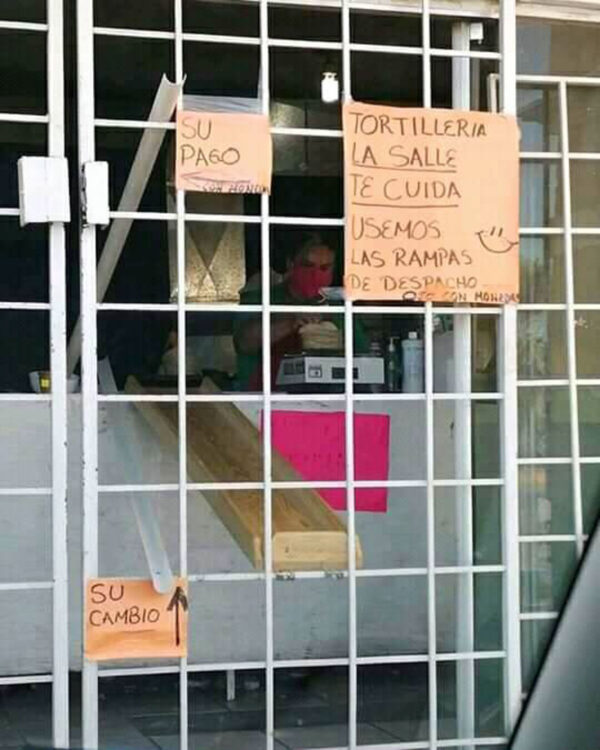 SU
PAGO
CON MONEDA
TORTILLERIA
LA SALLE
TE CUIDA
USEMOS
LAS RAMPAS
DE DESPACHO
CON MONEDAS
SU
CAMBIO